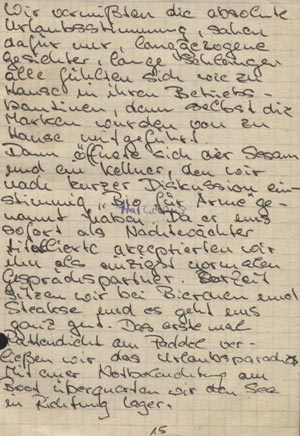 Wir vermißten die absolute
Urlaubsstimmung, sahen
dafür nur, langgezogene
gesichter, lange Schlangen
alle fühlten sich wie zu
Hause in ihren Betriebs-
kantinen, denn selbst die
Marken wurden von zu
Hause mitgeführt.
Dann öffnete sich der Sesam
und ein Kellner, den wir
nach kurzer Diskussion ein-
stimmig "Bio für Arme" ge-
nannt haben. Da er uns
sofort als Nachtwächter
titulierte akzeptierten wir
ihn als einzigst normalen
Gesprächspartner. Zurzeit
sitzen wir bei Bierchen und
Steakse und es geht uns
ganz gut. Das erste mal
Pattendicht am Paddel ver-
ließen wir das Urlaubsparadies
Mit einer Notbeleuchtung am
Boot überquerten wir den See
in Richtung Lager.
15